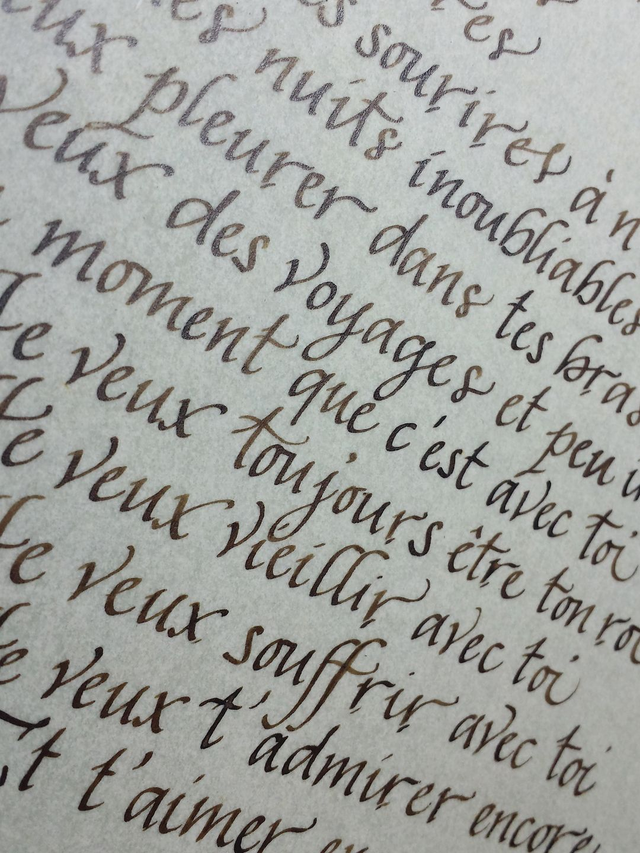 es
es sourires à n
es nuits inoubliables
eux pleurer dans tes bras
veux des voyages et peu i
moment que c'est avec toi
Je veux toujours être ton
Je veux vieillir avec toi
Je veux souffrir avec toi
Je veux t'admirer encore
Et t'aimer